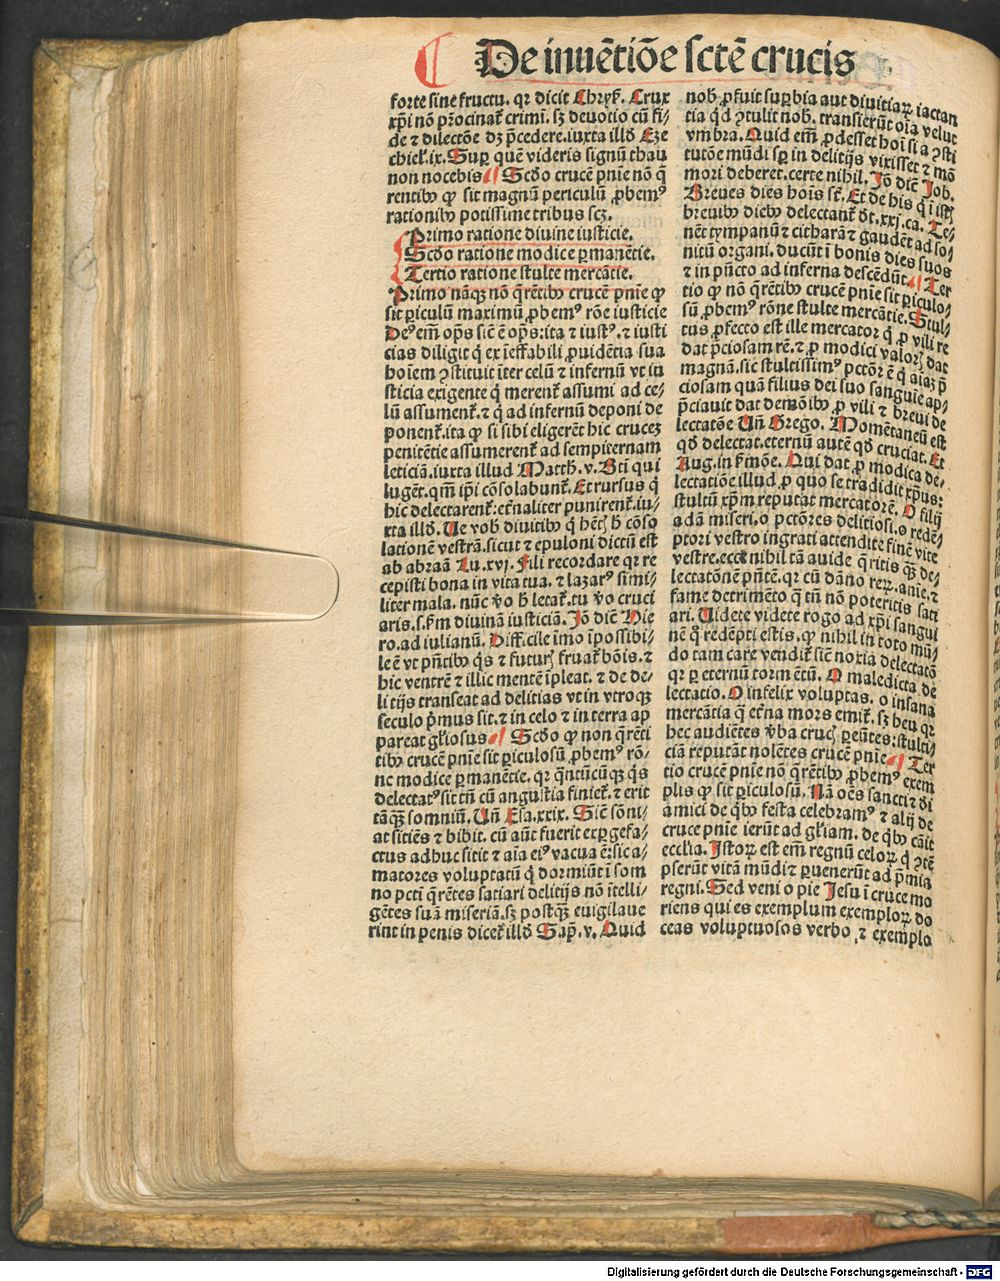 De inuētiōe sctē crucis
forte sine fructu. qꝛ dicit Chrysꝭ. Crux
xp̄i nō pꝛ̄ocinat̄ crimī. sꝫ deuotio cū fi⸗
de ⁊ dilectōe dꝫ p̄cedere. iuxta illḋ Eze
chieł. ix. Suꝑ quē videris signū thau
non nocebis Scḋo crucē pnīe nō q̄
rentibꝰ ꝙ sit magnū periculū ꝓbemꝰ
rationibꝰ potissime tribus scꝫ.
Primo ratione diuine iusticie.
Scḋo ratione modice ꝑmanētie.
Tertio ratione stulte mercātie.
Primo nāqꝫ nō q̄rētibꝰ crucē pnīe ꝙ
sit ꝑiculū maximū ꝓbemꝰ rōe iusticie
Deꝰ em̄ opꝭ sic̄ ē opꝭ: ita ⁊ iustꝰ. ⁊ iusti
cias diligit q̇ ex īeffabili ꝓuidētia sua
hoīem ꝯstituit īter celū ⁊ infernū vt iu
sticia exigente q̇ merent̄ assumi ad ce⸗
lū assument̄. ⁊ q̇ ad infernū deponi de
ponent̄. ita ꝙ si sibi eligerēt hic cruceꝫ
penitētie assumerent̄ ad sempiternam
leticiā. iuxta illud Matth. v. Bti qui
lugēt. qm̄ ip̄i cōsolabunt̄. Et rursus q̇
hic delectarent̄: et̄naliter punirent̄. iu⸗
xta illḋ. Ue vob̄ diuitibꝰ q̇ hēt̄ꝭ h̄ cōso
lationē vestrā. sicut ⁊ epuloni dictū est
ab abraā Lu. xvj. Fili recordare qꝛ re
cepisti bona in vita tua. ⁊ lazarꝰ simi⸗
liter mala. nūc v̇o h̄ letat̄. tu v̇o cruci
aris. s. ẜm diuinā iusticiā. Jō dic̄ Hie
ro. ad iulianū. Difficile īmo īpossibi⸗
le ē vt pn̄tibꝰ q̇s ⁊ futurꝭ fruat̄ bōis. ⁊
hic ventrē ⁊ illic mentē īpleat. ⁊ de de⸗
litijs transeat ad delitias vt in vtroqꝫ
seculo pꝛimus sit. ⁊ in celo ⁊ in terra ap
pareat gl̄iosus Scḋo ꝙ non q̄rēti
tibꝰ crucē pnīe sit ꝑiculosū ꝓbemꝰ rō⸗
ne modice ꝑmanētie. qꝛ qn̄tūcūqꝫ q̇s
delectatꝰ sit tn̄ cū angustia finiet̄. ⁊ erit
tāqꝫ̄ somniū. Un̄ Esa. xxix. Sic̄ sōni⸗
at sitiēs ⁊ bibit. cū aūt fuerit exꝑgefa⸗
ctus adhuc sitit ⁊ aīa eiꝰ vacua ē: sic a⸗
matores voluptatū q̇ dormiūt ī som
no pctī q̄rētes satiari delitijs nō ītelli⸗
gētes suā miseriā. sꝫ postqꝫ̄ euigilaue
rint in penis dicet̄ illḋ Sap̄. v. Quid
nob̄ ꝓfuit suꝑbia aut diuitiaꝝ iactan
tia qḋ ꝯtulit nob̄. transierūt oīa velut
vmbra. Quid em̄ ꝓdesset hoī si a ꝯsti
tutōe mūdi sꝑ in delitijs vixisset ⁊ mō
mori deberet. certe nihil. Jō dic̄ Job.
Breues dies hoīs sꝭ. Et de his q̇ ī istꝭ
breuibꝰ diebꝰ delectant̄ ḋt. xxj. ca. Te⸗
nēt tympanū ⁊ citharā ⁊ gaudēt ad so⸗
nitū organi. ducūt ī bonis dies suos
⁊ in pūcto ad inferna descēdūt Ter
tio ꝙ nō q̄rētibꝰ crucē pnīe sit ꝑiculo⸗
sū ꝓbemꝰ rōne stulte mercātie. Stul⸗
tus ꝓfecto est ille mercator q̇ ꝓ vili re
dat p̄ciosam rē. ⁊ ꝓ modici valorꝭ dat
magnā. sic stultissimꝰ pctōr ē q̇ aīaꝫ p̄
ciosam quā filius dei suo sanguie ap⸗
p̄ciauit dat demōibꝰ ꝓ vili ⁊ breui de
lectatōe Un̄ Grego. Momētaneū est
qḋ delectat. eternū autē qḋ cruciat. Et
Aug. in ẜmōe. Qui dat ꝓ modica de⸗
lectatiōe illud ꝓ quo se tradidit xp̄us:
stultū xp̄m reputat mercatorē. O filij
adā miseri. o pctōres delitiosi. o redē⸗
ptori vestro ingrati attendite finē vite
vestre. ecce nihil tā auide q̄ritis qꝫ̄ de⸗
lectatōnē pn̄tē. qꝛ cū dāno reꝝ. aīe. ⁊
fame detrimēto q̄ tn̄ nō poteritis sati
ari. Uidete videte rogo ad xp̄i sangui
nē q̊ redēpti estis. ꝙ nihil in toto mū⸗
do tam care vendit̄ sic̄ noxia delectatō
qꝛ ꝑ eternū tormētū. O maledicta de
lectatio. O infelix voluptas. o insana
mercātia q̄ et̄na mors emit̄. sꝫ heu qꝛ
hec audiētes v̇ba crucꝭ ꝑeūtes: stulti⸗
ciā reputāt nolētes crucē pnīe Ter
tio crucē pnīe nō q̄rētibꝰ ꝓbemꝰ exem
plis ꝙ sit ꝑiculosū. Nā oēs sancti ⁊ di
amici de q̇bꝰ festa celebramꝰ ⁊ alij de
cruce pnīe ierūt ad gl̄iam. de q̇bꝰ cāit
eccłia. Jstoꝝ est em̄ regnū celoꝝ q̇ ꝯtē
pserūt vitā mūdi ⁊ ꝑuenerūt ad p̄mia
regni. Sed veni o pie Jesu ī cruce mo
riens qui es exemplum exemploꝝ do
ceas voluptuosos verbo, ⁊ exemplo
Digitalisierung gefördert durch die Deutsche Forschungsgemeinschaft - DFG